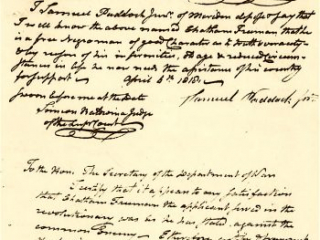 I Samuel Paddock Junr. of Meridon depose & say that
I well know the above named Chatham Freeman that he
is a free Negroman of good Character as to truth & veracity
& by reason of his infirmities, Old age & reduced Circum-
stances in life he now needs the assistance of his country
for support. April 4th 1818.
Sworn before me at the date Samuel Paddock Jnr.
Judge
of the Court
To the Hon. The Secretary of the Department of War
I certify that it appears to my satisfaction
that Chatham Freeman the applicant, served in the
revolutionary war as he has stated against the
common Enemy. I therefore